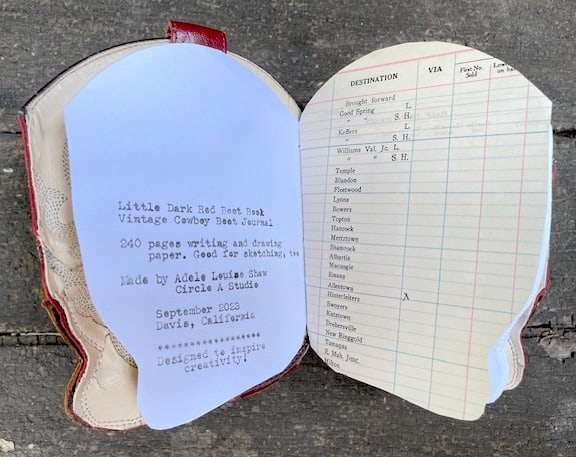 Little Dark Red Boot Book
Vintage Cowboy Boot Journal
240 pages writing and drawing
paper. Good for sketching, too
Made by Adele Louise Shaw
Circle A Studio
September 2023
Davis, California
*****************
Designed to inspire
creativity!
DESTINATION VIA First No. Sold
Brought forward
Good Spring L.
" " S. H.
Keffers L.
" S. H.
Williams Val. Jc. L.
" " S. H.
Temple
Blandon
Fleetwood
Lyons
Bowers
Topton
Hancock
Mertztown
Shamrock
Alburtis
Macungie
Emaus
Allentown
Hinterleiters
Sweyers
Kutztown
Drehersville
New Ringgold
Tamaqua
E. Mah. Junc.
Milton